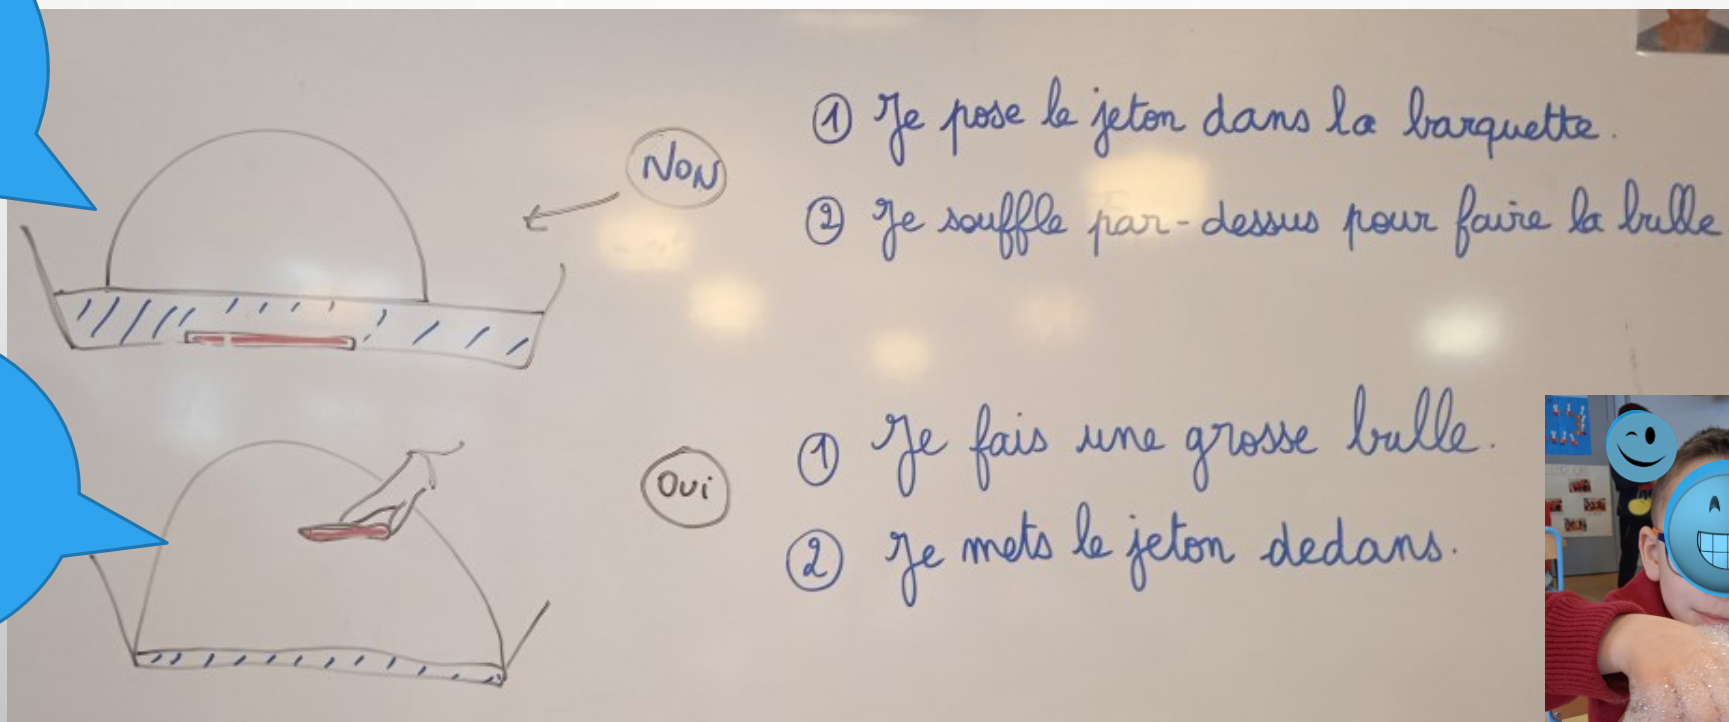 NON
① Je pose le jeton dans la barquette.
② Je souffle par-dessus pour faire la bulle
Oui
① Je fais une grosse bulle.
② Je mets le jeton dedans.